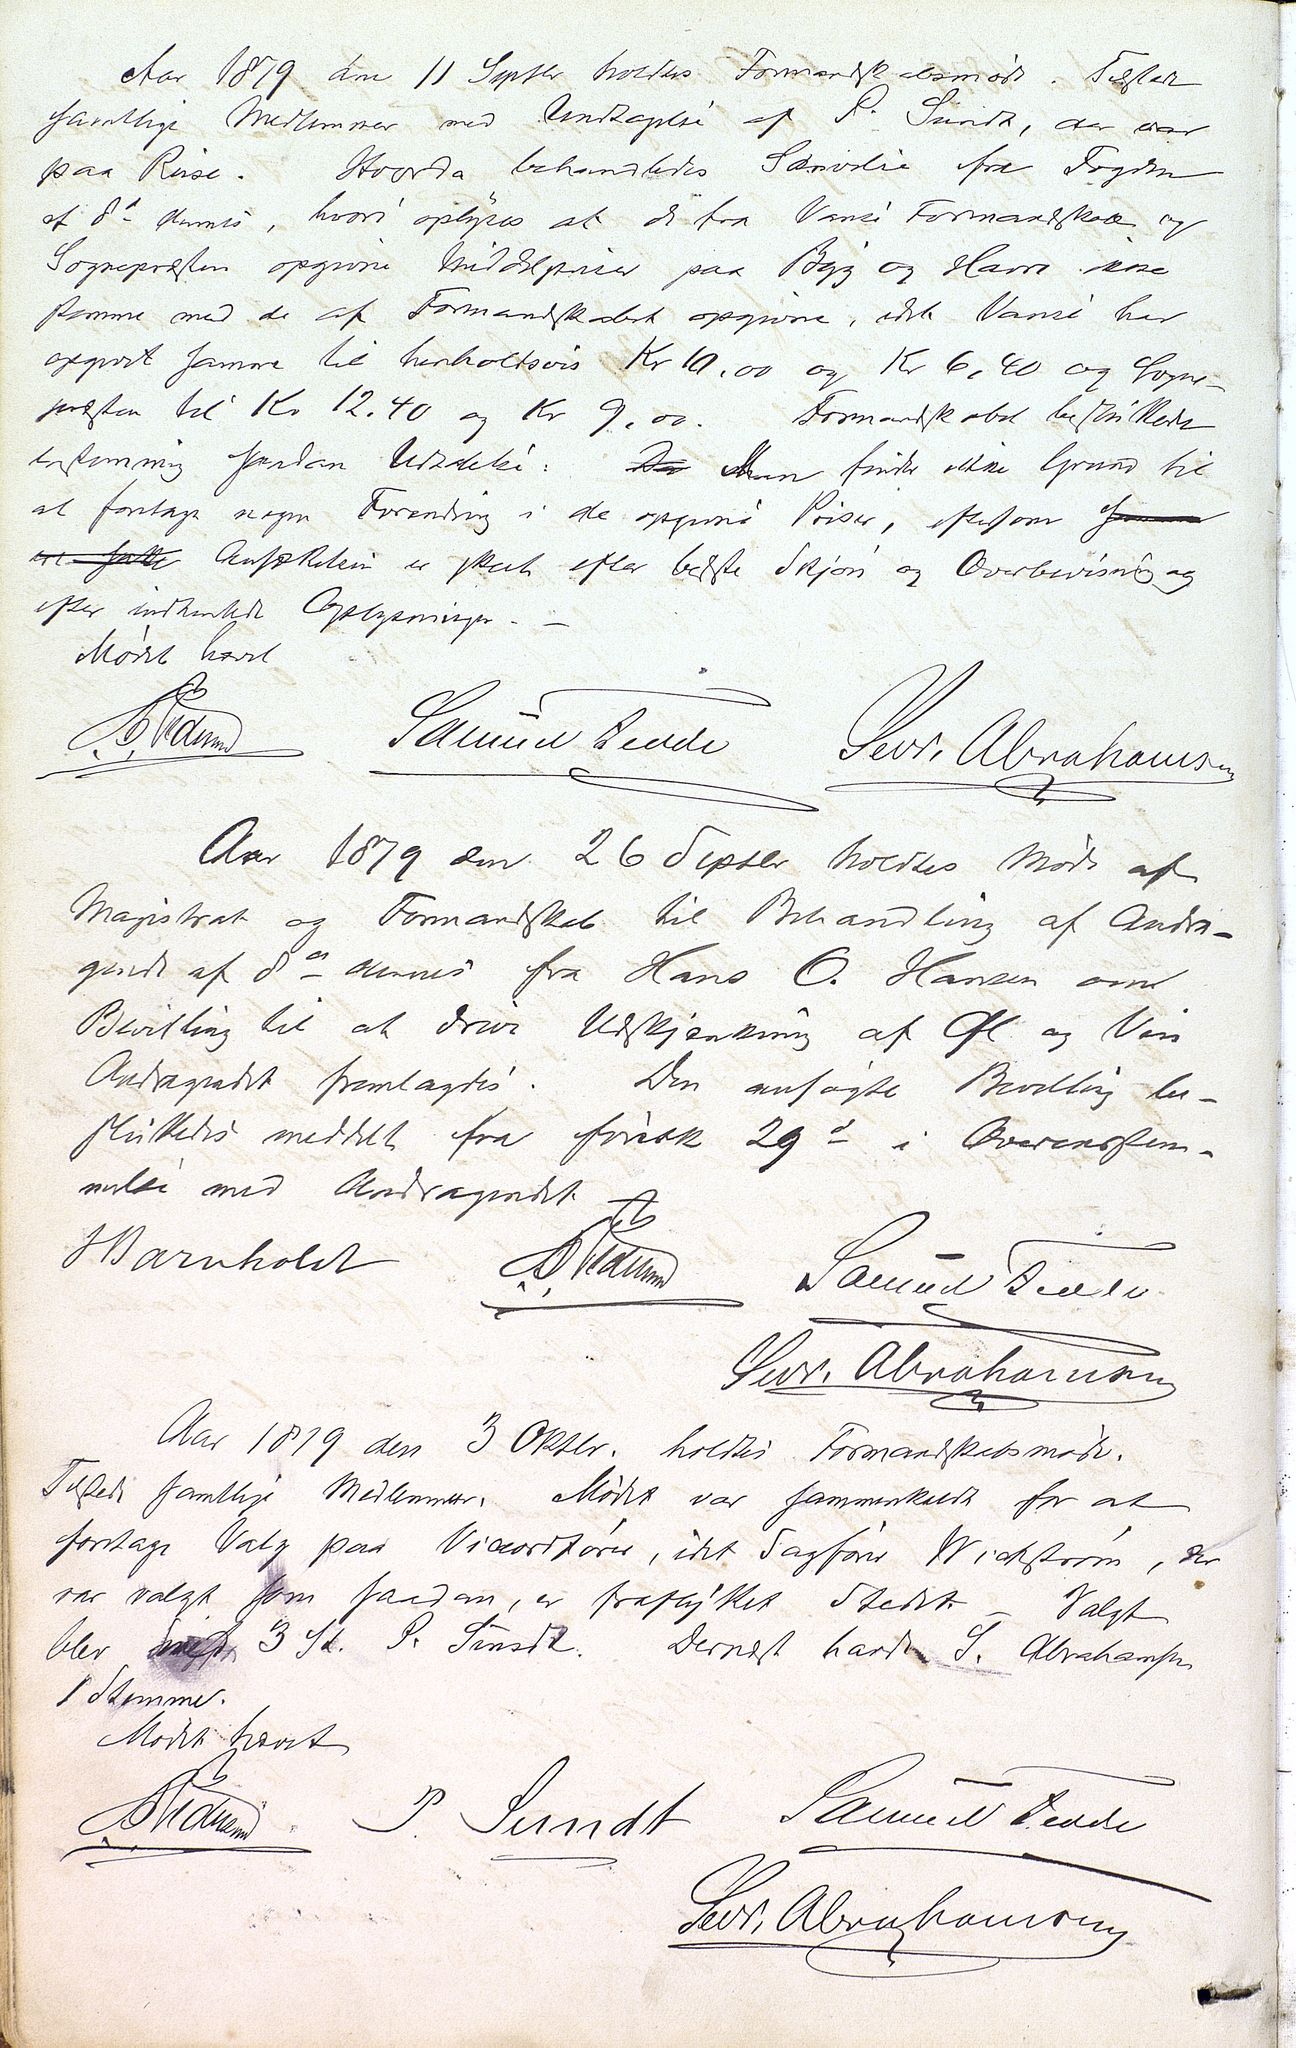 Aar 1879 den 11 Septbr holdtes Formandskabsmøde. Tilstede
samtlige Medlemmer med Undtagelse af P. Sundt, der var
paa Reise. Hvorda behandledes Skrivelse fra Fogden
af 8d dennes, hvori oplyses at de fra Vansø Formandskab og
Sognepræsten opgivne Middelpriser paa Byg og Havre ikke
stemme med de af Formandskabet opgivne, idet Vansø har
opgivet samme til henholdsvis Kr 10,00 og Kr 6,40 og Sogne-
præsten til Kr 12.40 og Kr 9,00. Formandskabet besluttede
enstemmig saadan Udtalelse: Man finder ikke Grund til
at foretage nogen Forandring i de opgivne Priser, eftersom
Ansættelsen er skeet efter bedste Skjøn og Overbevisning og
efter indhentede Oplysninger. —
Mødet hævet
Samuel Fedde Sevr. Abrahamsen
Aar 1879 den 26 Septbr holdtes Møde af
Magistrat og Formandskab til Behandling af Andra-
gende af 8de dennes fra Hans O. Hansen om
Bevilling til at drive Udskjænkning af Øl og Vin
Andragendet fremlagdes. Den ansøgte Bevilling be-
sluttedes meddelt fra førstk 29d i Overensstem-
melse med Andragendet.
HBarnholdt Samuel Fedde
Sevr. Abrahamsen
Aar 1879 den 3 Oktbr. holdtes Formandskabsmøde.
Tilstede samtlige Medlemmer. Mødet var sammenkaldt for at
foretage Valg paa Viceordfører, idet Sagfører Wickstrøm, der
var valgt som saadan, er fraflyttet Stedet. — Valgt
blev med 3 St. P. Sundt. Dernæst havde S. Abrahamsen
1 Stemme.
Mødet hævet
P. Sundt Samuel Fedde
Sevr. Abrahamsen